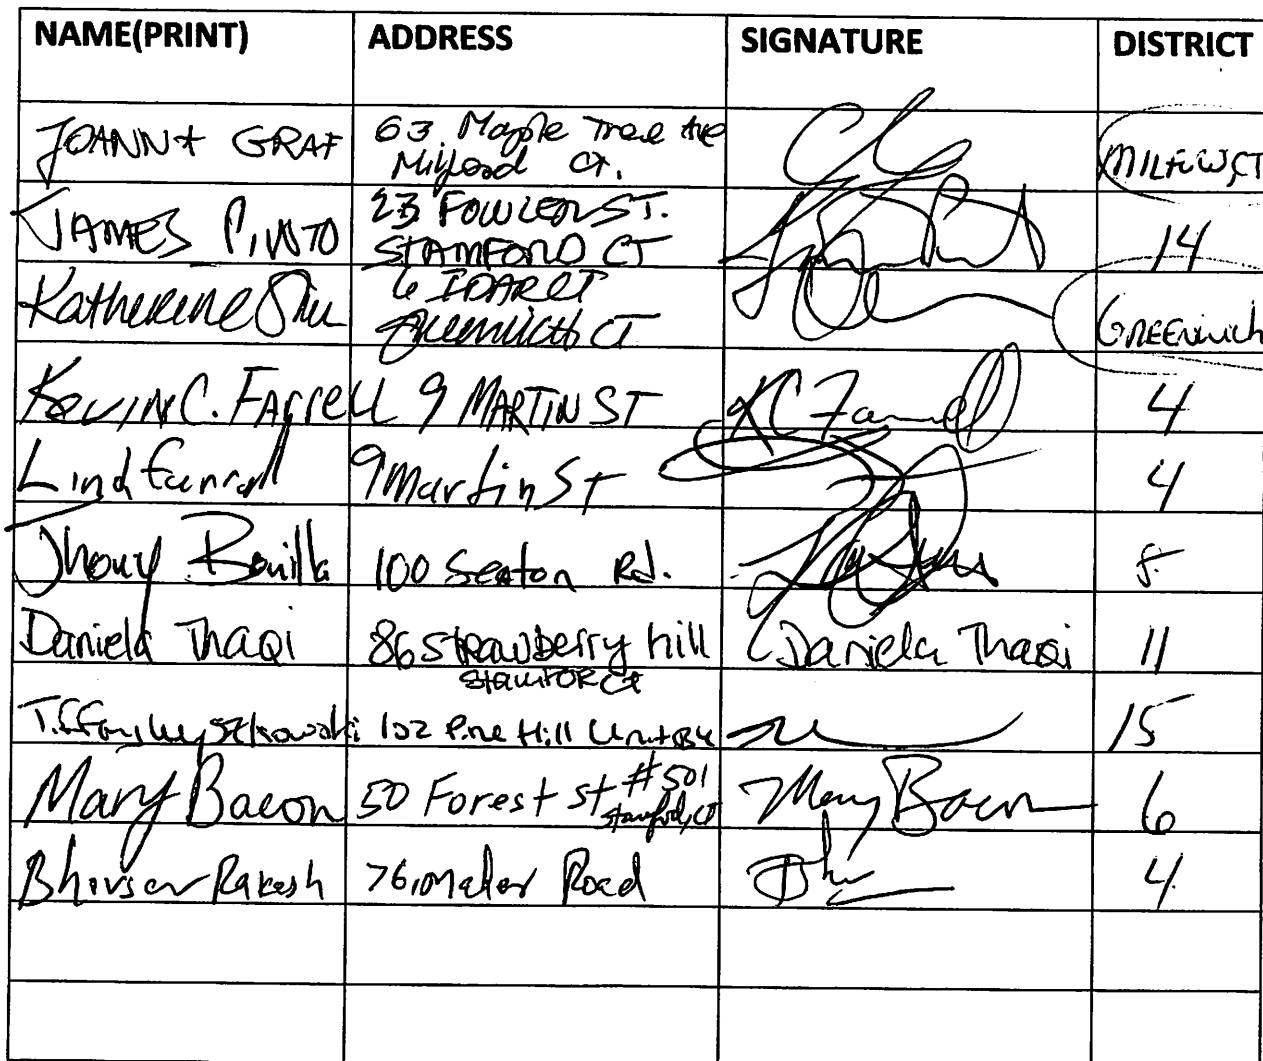 NAME(PRINT) ADDRESS SIGNATURE DISTRICT
JOANN GRAF 63 Maple Tree Ave
Milford CT. MILFORD, CT
JAMES PINTO 23 FOWLER ST.
STAMFORD CT 14
Katherine
Greenwich CT GREENWICH
Kevin C. Farrell 9 MARTIN ST KC Farrell 4
Farrell 9 Martin ST 4
Jhony Bonilla 100 Seaton Rd.
Daniela Thaqi 86 Strawberry hill Daniela Thaqi 11
102 Pine Hill Unit 15
Mary Bacon 50 Forest st #501
Stamford, CT Mary Bacon 6
Rakesh Road 4